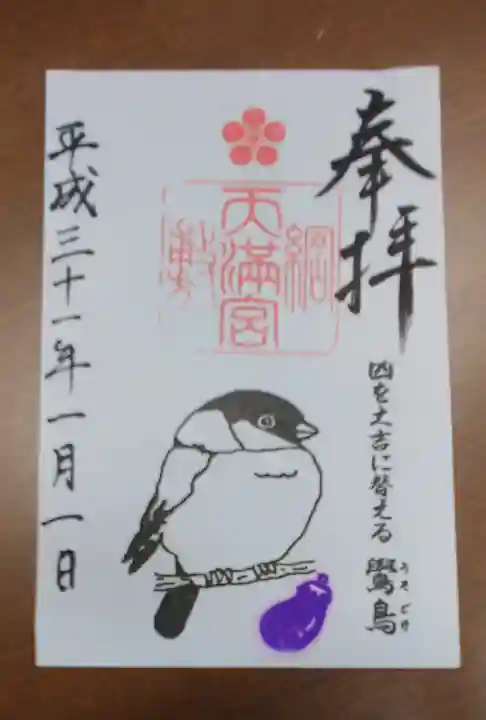 奉拝
凶を大吉に替える 鷽鳥
うそどり
綱
天満宮
敷
平成三十一年一月一日